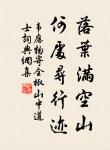 落葉滿空山
何處尋行迹
韋應物寄全椒山中道
士詞典網集